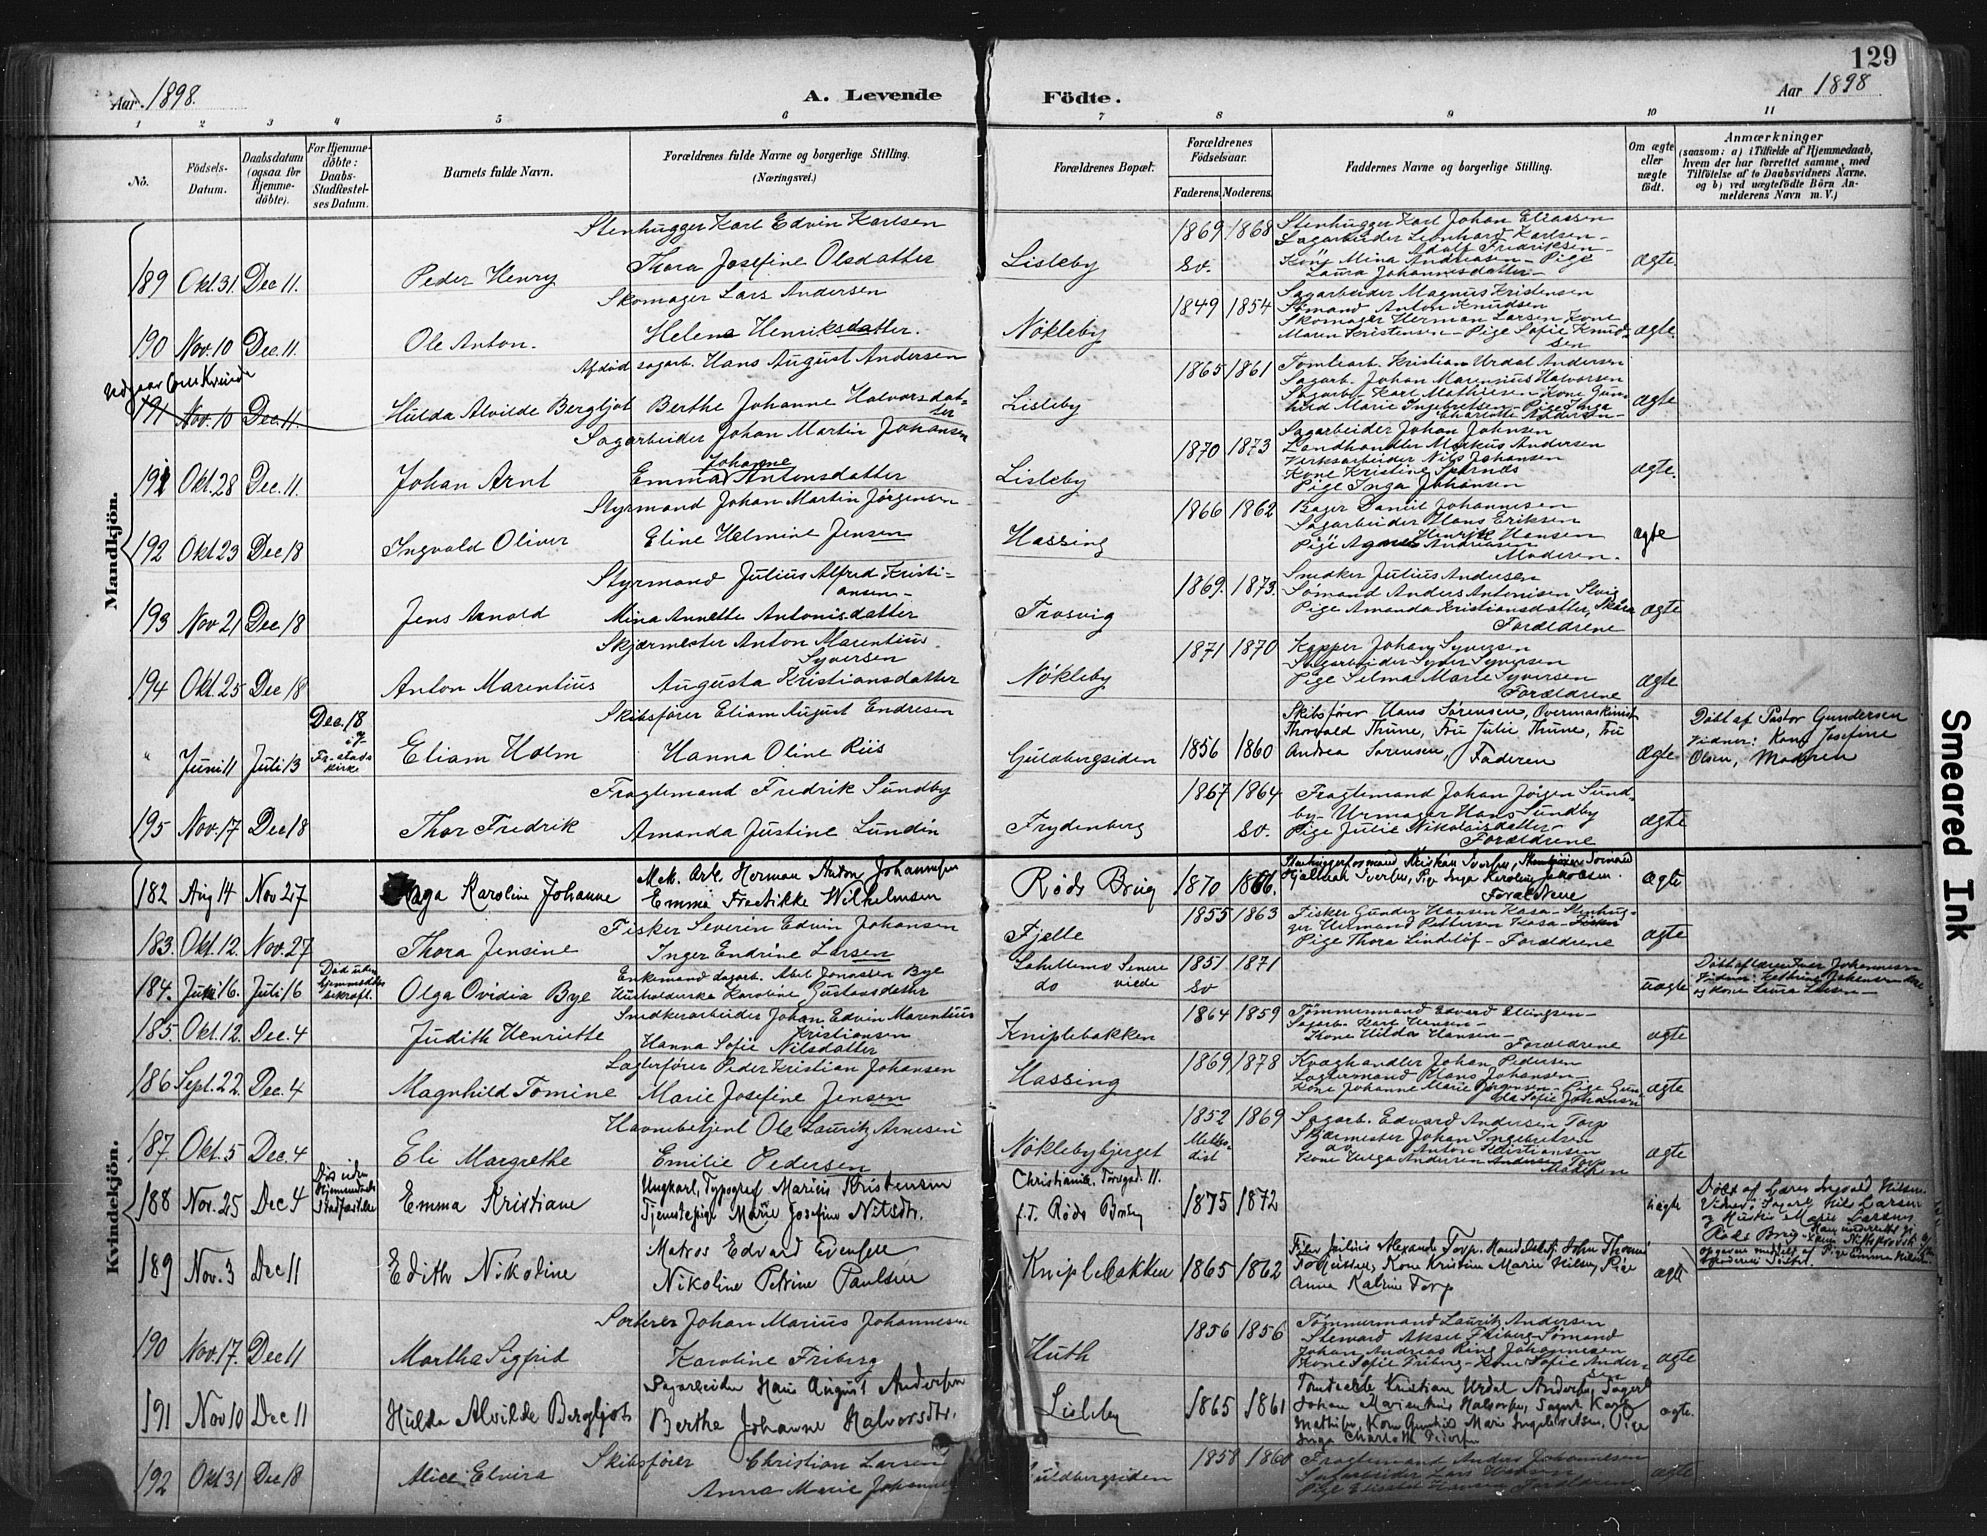 129
Aar 1898.
A. Levende
Födte.
Aar 1898
1 2 3 4 5 6 7 8 9 10 11
No.
Födsels-Datum.
Daabsdatum (ogsaa for Hjemme-döbte).
For Hjemme-döbte: Daabs-Stadfæstel-ses Datum.
Barnets fulde Navn.
Forældrenes fulde Navne og borgerlige Stilling.
(Næringsvei.)
Forældrenes Bopæl.
Forældrenes Födselsaar.
Faderens. Moderens.
Faddernes Navne og borgerlige Stilling.
Om ægte eller uægte födt.
Anmærkninger
(saasom: a) i Tilfælde af Hjemmedaab, hvem der har forrettet samme, med Tilföielse af to Daabsvidners Navne, og b) ved uægtefödte Börn An-melderens Navn m. V.)
Mandkjön.
Stenhugger Karl Edvin Karlsen 1869 1868 Stenhugger Karl Johan Eliassen
Sagarbeider Leonhard Karlsen -
Adolf Fredriksen -
189 Okt. 31. Dec 11. Peder Henry Thora Josefine Olsdatter Lisleby sv. Kone Mina Andreasen - Pige ægte.
Laura Johannesdatter -
Skomager Lars Andersen 1849 1854 Sagarbeider Magnus Kristensen
Sømand Anton Knudsen
190 Nov. 10 Dec. 11. Ole Anton. Helene Henriksdatter. Nøkleby Skomager Herman Larsen Kone ægte.
Maren Kristensen - Pige Sofie Knud-
sen
Udgaar Cons Kvinde
Afdød sagarb. Hans August Andersen 1865 1861 Tomtearb. Kristian Urdal Andersen
Sagarb. Johan Marenius Halvorsen
191 Nov. 10 Dec. 11. Hulda Alvilde Bergljot Berthe Johanne Halvorsdat- Lisleby Sagarb. Karl Mathisen - Kone Gun- ægte
ter hild Marie Ingebretsen - Pige Inga
Charlotte Andersen -
Sagarbeider Johan Martin Johansen 1870 1873 Sagarbeider Johan Johnsen
Landhandler Markus Andersen
Johanne Verksarbeider Nils Johansen
191 Okt. 28 Dec. 11. Johan Arnt Emma Antonsdatter Lisleby Kone Kristine Spernæs ægte.
Pige Inga Johansen
Styrmand Johan Martin Jørgensen 1866 1862 Bager Daniel Johannesen
Sagarbeider Hans Eriksen
192 Okt 23 Dec 18 Ingvald Oliver Eline Helmine Jensen Hassing Henrik Hansen ægte
Pige Agnes Andreasen
Moderen.
Styrmand Julius Alfred Kristi- 1869. 1873. Snedker Julius Andersen
ansen - Sømand Anders Antonisen Slevig
193 Nov 21 Dec. 18 Jens Arnold Mina Annette Antonisdatter Trosvig Pige Amanda Kristiansdatter, Skåra ægte
Forældrene
Skjærmester Anton Marentius 1871 1870 Kapper Johan Syversen
Syversen Sagarbeider Syver Syversen
194 Okt. 25 Dec 18 Anton Marentius Augusta Kristiansdatter Nøkleby Pige Selma Marie Syversen ægte
Forældrene
Dec. 18 i Fr-stads kirke
Skibsfører Eliam August Endresen Skibsfører Hans Sørensen, Overmaskinist
" Juni 11 Juli 13 Eliam Holm Hanna Oline Riis Guldbergsiden 1856 1860 Thorvald Thune, Fru Julie Thune, Fru ægte
Andrea Sørensen, Faderen
Döbt af Pastor Gundersen
Vidner: Kone Josefine
Olsen, Moderen
Fragtemand Fredrik Sundby 1867 1864 Fragtemand Johan Jørgen Sund-
by - Urmager Hans Sundby
195 Nov. 17 Dec 18 Thor Fredrik Amanda Justine Lundin Frydenberg sv. Pige Julie Nikolaisdatter - ægte
Forældrene
Kvindekjön.
182 Aug 14 Nov 27 Aaga Karoline Johanne Mek. Arb. Herman Anton Johannesen Röds Brug 1870 1866. ægte
Emma Fredrikke Wilhelmsen
Hjalmar Iversen, Pige Inga Karoline Jakobsen.
Forældrene
Fisker Severin Edvin Johansen 1855 1863 Fisker Gunder Hansen Kasa - Stenhug-
183. Okt. 12. Nov. 27 Thora Jensine Inger Endrine Larsen Fjelle ger Hermand Pettersen Kasa - ægte
Pige Thora Lindelöf - Forældrene
Död uden Hjemmedaabs bekræft.
Enkemand dagarb. Abel Jonassen Bye 1851 1871
184. Juni 16. Juli 16 Olga Ovidia Bye Husholderske Karoline Gustavsdatter do sv uægte
og Kone Laura Larsen -
Snedkerarbeider Johan Edvin Marentius 1864 1859 Tömmermand Edvard Ellingsen -
Kristiansen Sagarb. Karl Hansen -
185. Okt. 12. Dec. 4 Judith Henriette Hanna Sofie Nilsdatter Kniplebakken Kone Hilda Hansen - ægte
Forældrene
Lagterfører Peder Kristian Johansen 1869 1878 Kvæghandler Johan Pedersen
Lagtermand Hans Johansen -
186 Sept. 22. Dec. 4 Magnhild Tomine Marie Josefine Jensen Hassing Kone Johanne Marie Jørgensen - Pige Gun- ægte
da Sofie Johansen
Havnebetjent Ole Lauritz Arnesen 1852 1869 Sagarb. Edvard Andersen Torp
Metho-dist Skjærmester Johan Ingebretsen
187. Okt. 5 Dec. 4 Eli Margrethe Emilie Pedersen Nøklebybjerget do Anton Kristiansen ægte
Kone Helga Andersen Torp
Moderen
188 Nov. 25 Dec 4 Emma Kristiane Ungkarl, Typograf Marius Kristensen Christiania, Torvgad. 11. 1875 1872 uægte
Tjenestepige Marie Josefine Nilsdtr. f.T. Röds Brug
Döbt af Lærer Ingvald Nilsen.
Vidner: Sagarb. Nils Larsen
og Hustru Marie Larsen
Röds Brug
189 Nov. 3 Dec 11 Edith Nikoline Matros Edvard Evensen Kniplebakken 1865 1862 ægte
Nikoline Petrine Paulsen
Kone Kristine Marie Nilsen, Pige
Anne Katrine Torp
Sorterer Johan Marius Johannesen 1856 1856 Tömmermand Laurits Andersen
Steward Aksel Friberg - Sømand
190 Nov. 17. Dec 11 Martha Sigfrid Karoline Friberg Huth Johan Andreas Ring Johannesen ægte
Kone Sofie Friberg - Kone Sofie Ander-
sen
Sagarbeider Hans August Andersen Tomtearb. Kristian Urdal Andersen, Sagarb.
191 Nov 10 Dec 11 Hulda Alvilde Bergljot Berthe Johanne Halvorsdtr. Lisleby 1865 1861 Johan Marenius Halvorsen, Sagarb. Karl ægte.
Mathisen, Kone Gunhild Marie Ingebretsen, Pige
Inga Charlotte Pedersen
Skibsfører Christian Larsen 1858 1860 Fragtemand Anders Johannesen
192 Okt 31 Dec 18 Alice Elvira Anna Marie Johannes Guldbergsiden Sagarbeider Lars Hansen ægte
Pige Elisabet Hansen Forældrene
Smeared Ink